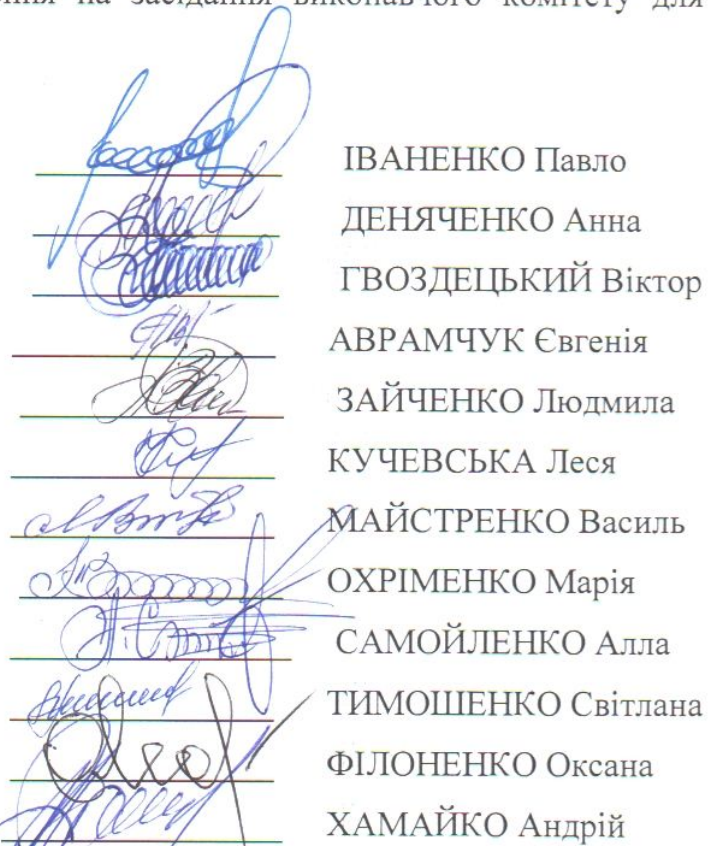 на засідання виконавчого комітету для
ІВАНЕНКО Павло
ДЕНЯЧЕНКО Анна
ГВОЗДЕЦЬКИЙ Віктор
АВРАМЧУК Євгенія
ЗАЙЧЕНКО Людмила
КУЧЕВСЬКА Леся
МАЙСТРЕНКО Василь
ОХРІМЕНКО Марія
САМОЙЛЕНКО Алла
ТИМОШЕНКО Світлана
ФІЛОНЕНКО Оксана
ХАМАЙКО Андрій